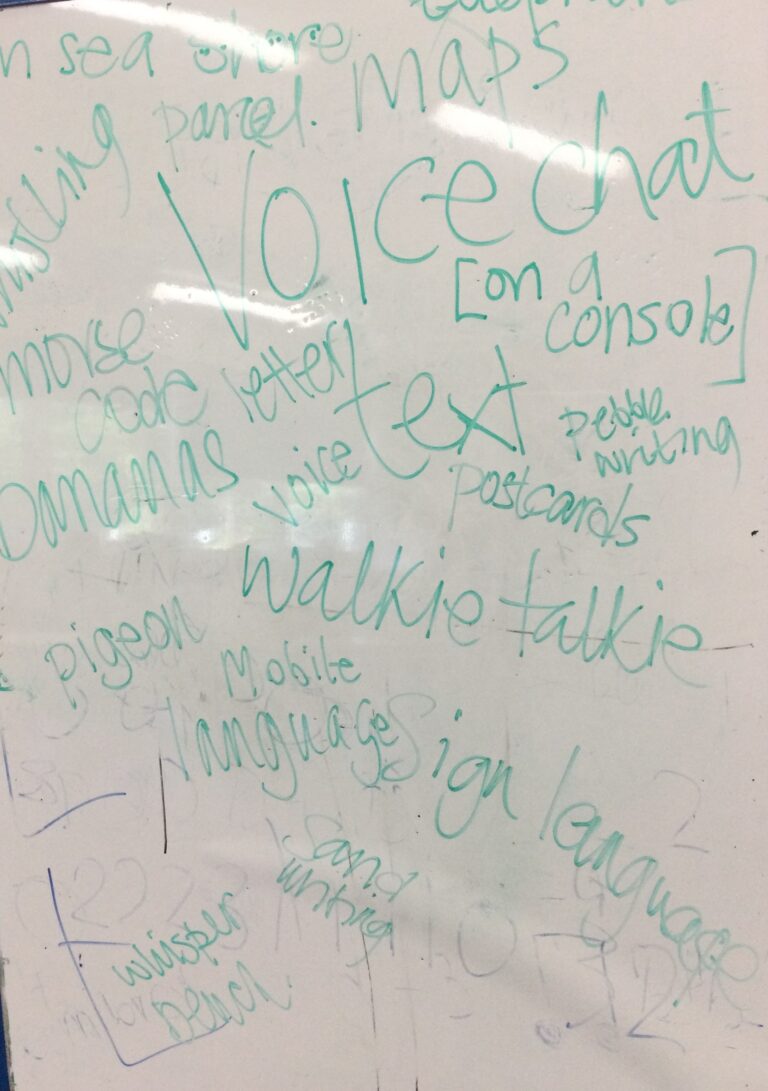 sea shore
maps
parcel.
Voice chat
[on a
console]
morse
code
letter
text
pebble
writing
bananas
voice
postcards
walkie talkie
pigeon
Mobile
language
Sign language
Sand
writing
whisper